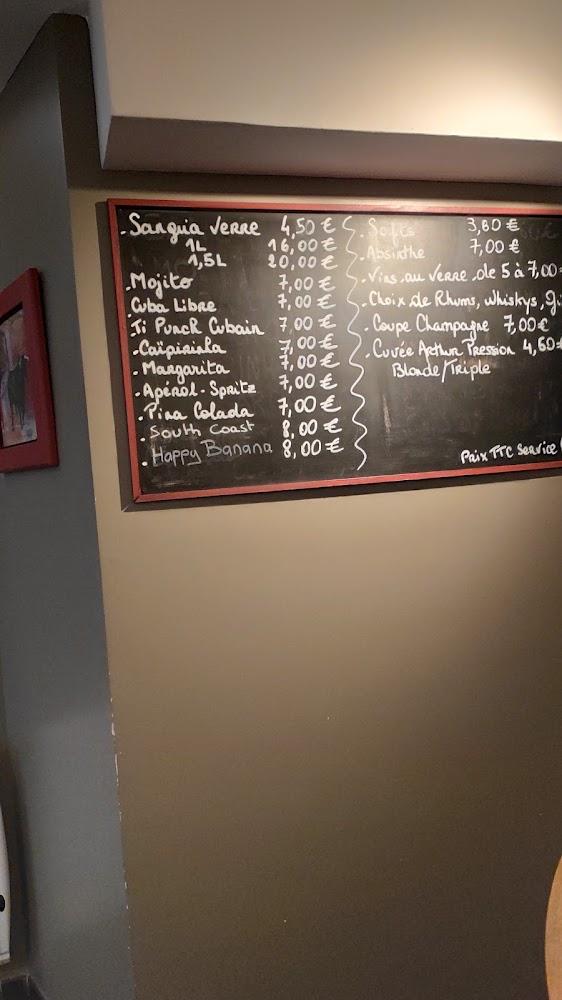 . Sangria Verre 4,50 €
1L 16,00 €
1,5L 20,00 €
. Mojito 7,00 €
. Cuba Libre 7,00 €
. Ti Punch Cubain 7,00 €
. Caïpirinha 7,00 €
. Margarita 7,00 €
. Apérol. Spritz 7,00 €
. Pina Colada 7,00 €
. South Coast 8,00 €
. Happy Banana 8,00 €
. Softs 3,60 €
. Absinthe 7,00 €
. Vins au verre de 5 à 7,00
. Choix de Rhums, Whiskys,
. Coupe Champagne 7,00 €
. Cuvée Arthur Pression 4,60 €
Blonde/Triple
Prix TTC Service